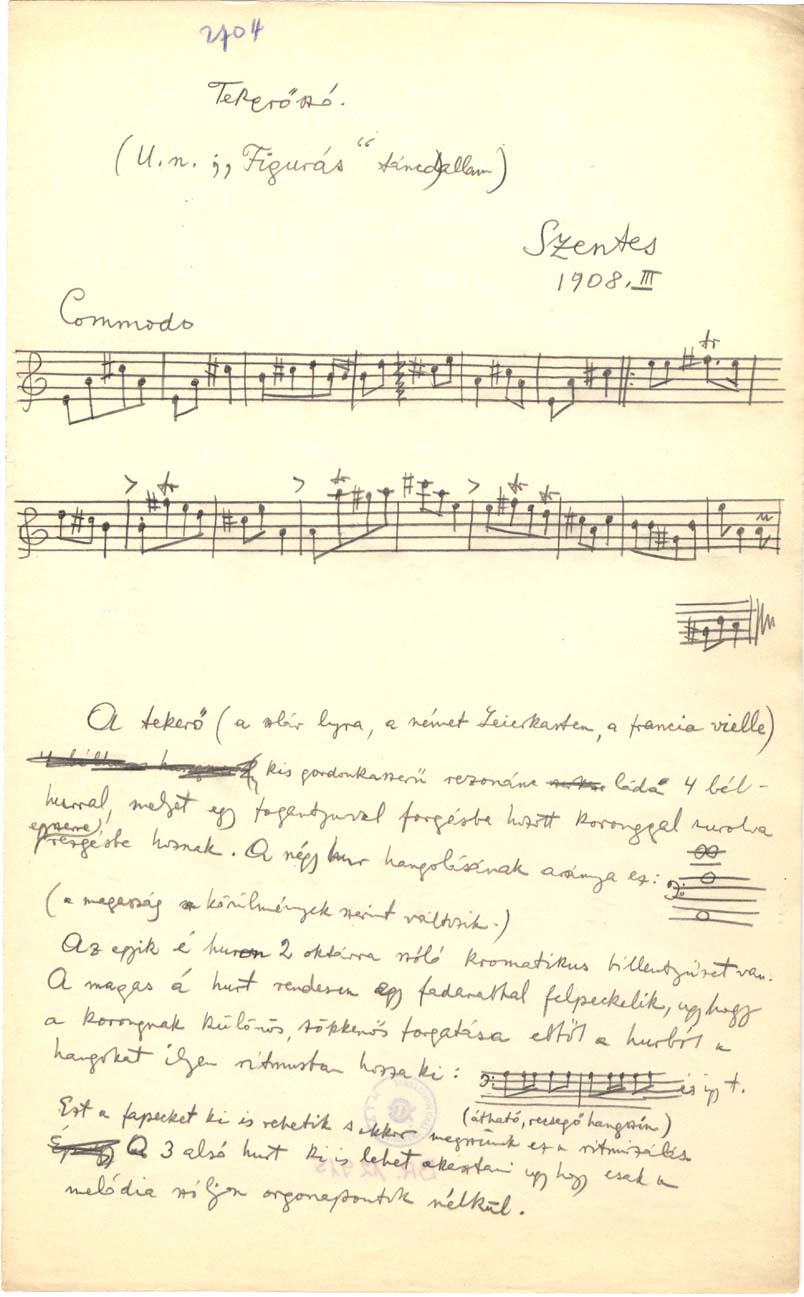 2704
Tekerőszó.
(U.n. „Figurás“ táncdallam)
Szentes
1908. III
Commodo
tr
> tr > tr > tr tr
A tekerő (a szláv lyra, a német Leierkasten, a francia vielle)
kis gordonkaszerű rezonáns láda 4 bél-
hurral, melyet egy fogantyuval forgásba hozott koronggal surolva
egyszerre rezgésbe hoznak. A négy hur hangolásának aránya ez:
(a magasság a körülmények szerint változik.)
Az egyik é huron 2 oktávra szóló kromatikus billentyüzet van.
A magas á hurt rendesen egy fadarabbal felpeckelik, ugy hogy
a korongnak különös, zökkenős forgatása ebből a hurból a
hangokat ilyen ritmusban hozza ki: és igy t.
(átható, recsegő hangszín)
Ezt a fapecket ki is vehetik s akkor megszünik ez a ritmizálás
A 3 alsó hurt ki is lehet akasztani ugy hogy csak a
melódia szóljon orgonapontok nélkül.